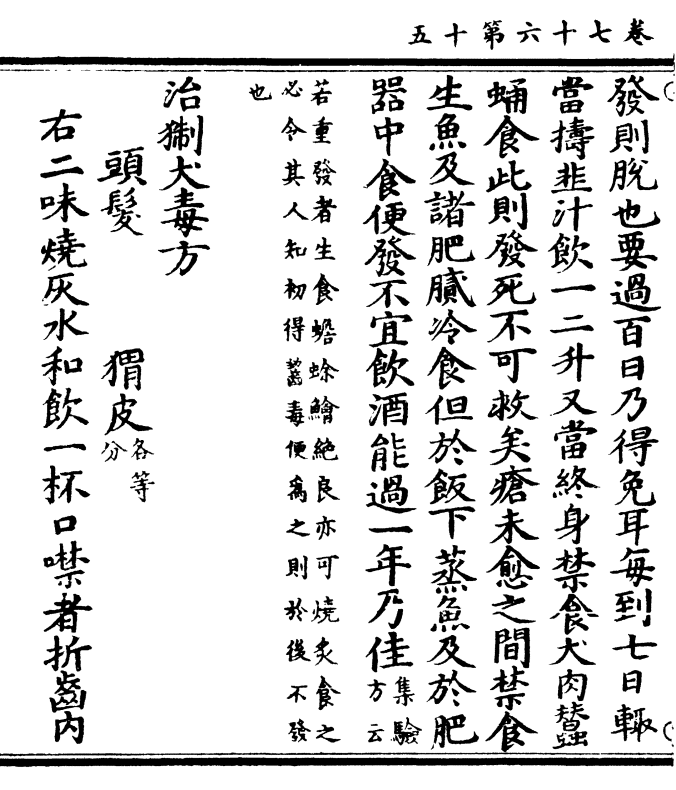 卷七十六第十五
發則脫也要過百日乃得免耳每到七日輙
當擣韮汁飲一二升又當終身禁食犬肉蠶
蛹食此則發死不可救矣瘡未愈之間禁食
生魚及諸肥膩冷食但於飯下蒸魚及於肥
器中食便發不宜飲酒能過一年乃佳集驗
方云
若重發者生食蟾蜍鱠絕良亦可燒炙食之
必令其人知初得齧毒便爲之則於後不發
也
治猘犬毒方
頭髮　猬皮各等
分
右二味燒灰水和飲一杯口噤者折齒內